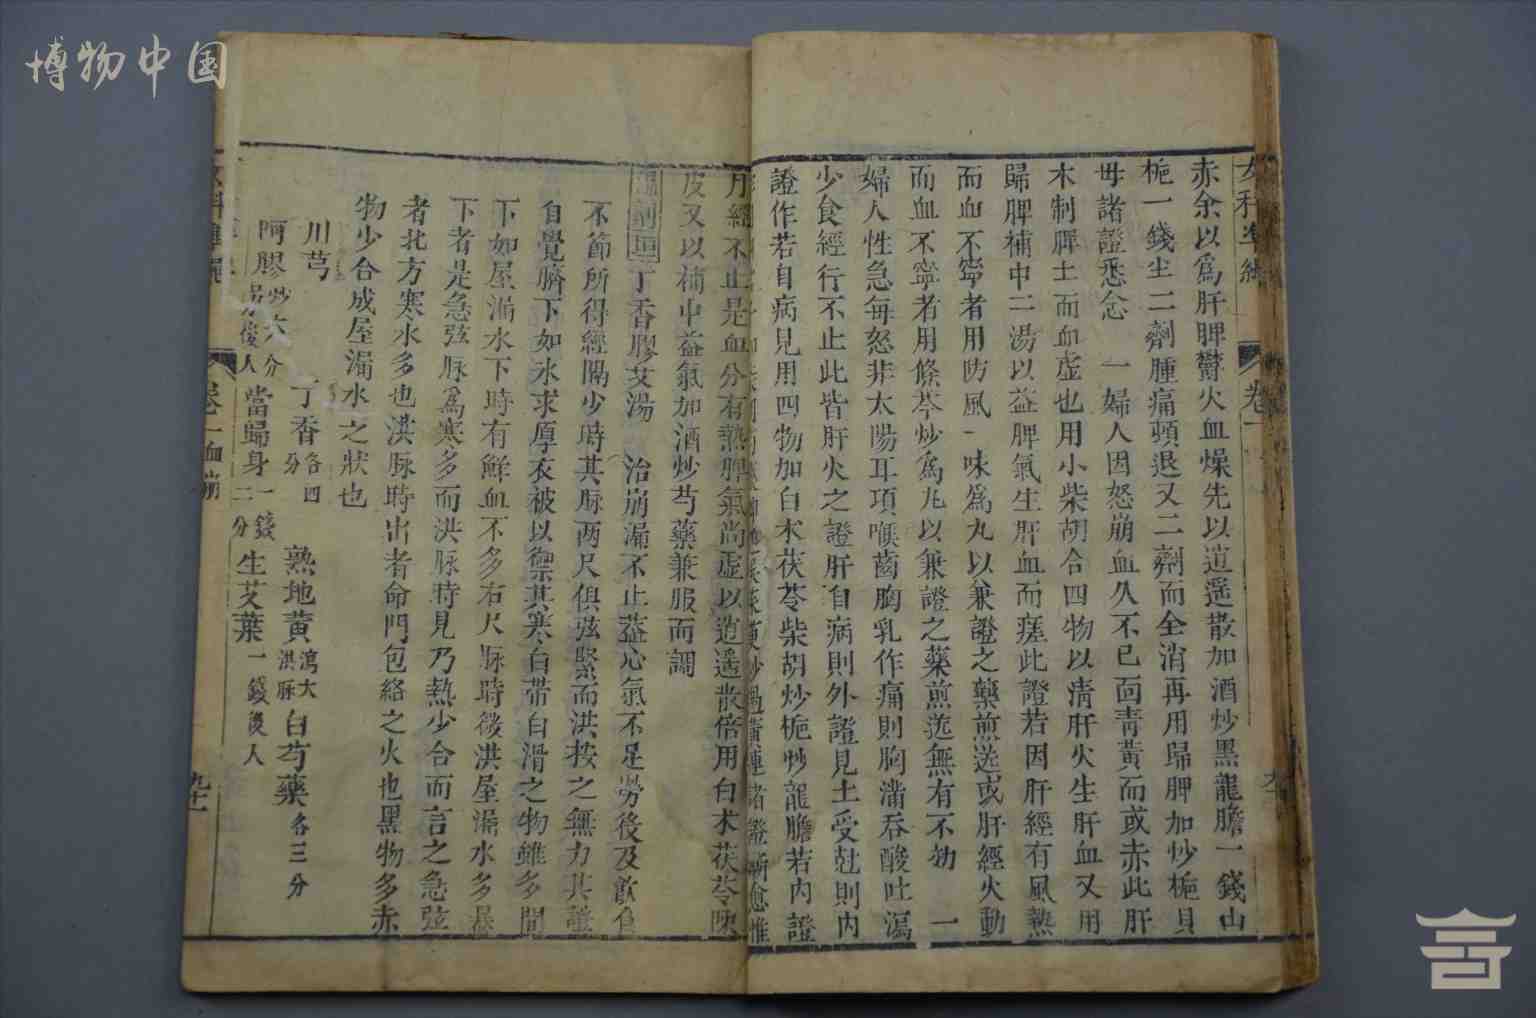 博物中国
女科準繩
卷一
赤余以爲肝脾鬱火血燥先以逍遥散加酒炒黒龍膽一錢山
梔一錢尘二劑腫痛頓退又二劑而全消再用歸脾加炒梔貝
母諸證悉愈 一婦人因怒崩血久不已面靑黃而或赤此肝
木制脾土而血虚也用小柴胡合四物以淸肝火生肝血又用
歸脾補中二湯以益脾氣生肝血而瘥此證若因肝經有風熱
而血不寕者用防風一味爲丸以兼證之藥煎送或肝經火動
而血不寧者用條芩炒爲丸以兼證之藥煎送無有不効 一
婦人性急每怒非太陽耳項喉齒胸乳作痛則胸滿吞酸吐瀉
少食經行不止此皆肝火之證肝自病則外證見土受尅則内
證作若自病見用四物加白朮茯苓柴胡炒梔炒龍膽若内證
諸證漸愈惟
月經不止是血分有熱脾氣尚虚以逍遥散倍用白朮茯苓陳
皮又以補中益氣加酒炒芍藥兼服而調
丁香膠艾湯 治崩漏不止蓋心氣不足勞役及飮食
不節所得經隔少時其脉兩尺俱弦緊而洪按之無力其證
自覺臍下如氷求厚衣被以禦其寒白帶白滑之物雖多間
下如屋漏水下時有鮮血不多右尺脉時微洪屋漏水多暴
下者是急弦脉爲寒多而洪脉時見乃熱少合而言之急弦
者北方寒水多也洪脉時出者命門包絡之火也黒物多赤
物少合成屋漏水之狀也
川芎 丁香各四分 熟地黃 白芍藥各三分
阿膠炒六分 當歸身一錢二分 生艾葉一錢後人
卷一血崩
九十一